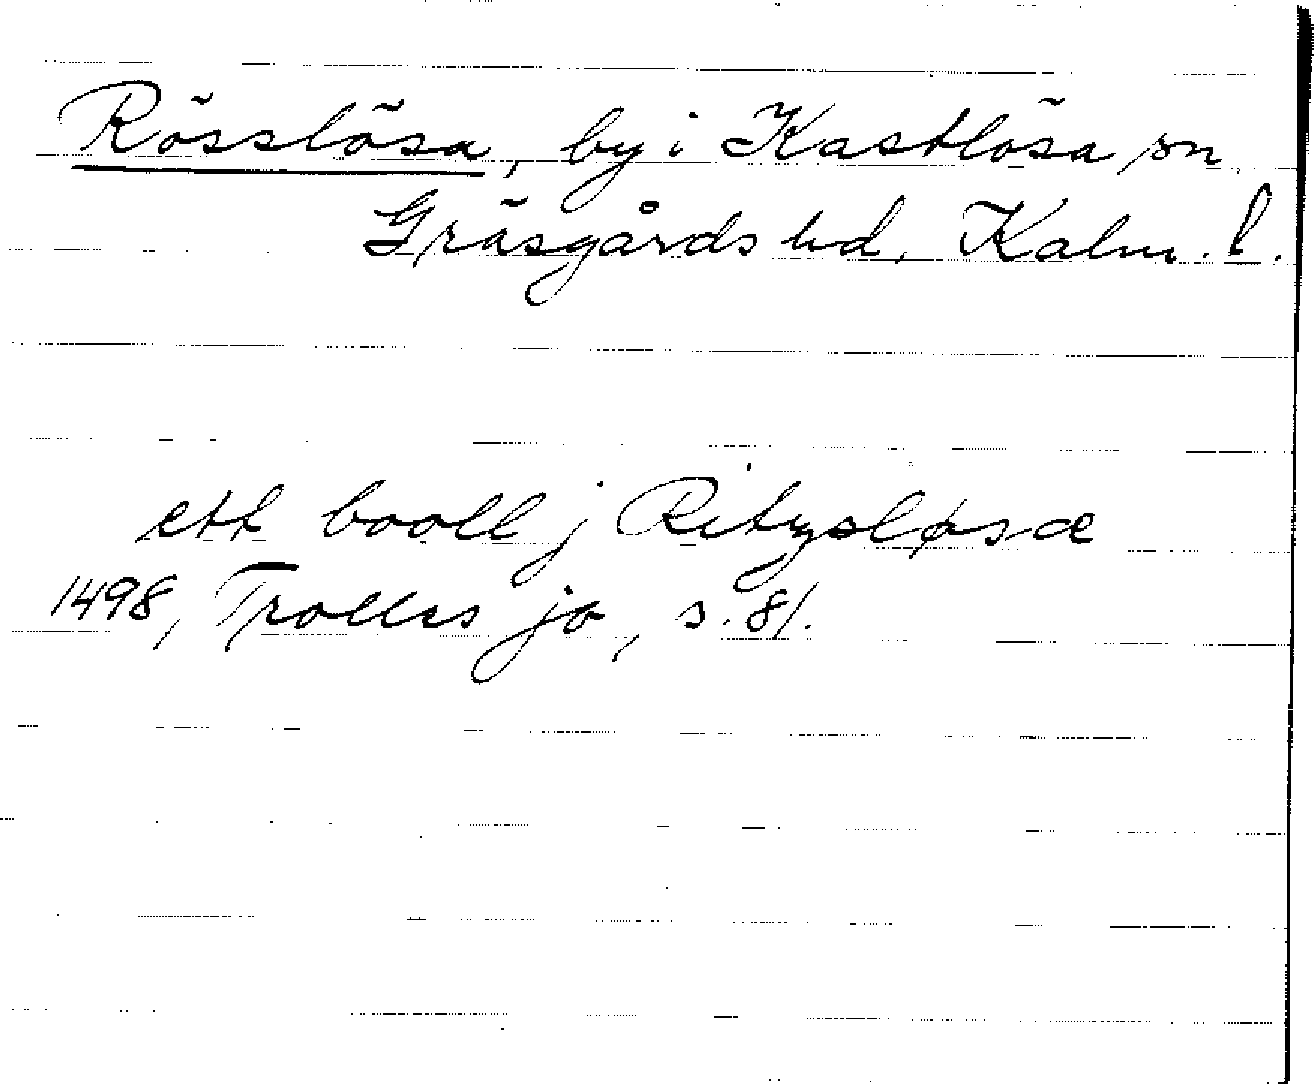 Rösslösa, by i Kastlösa sn,
Gräsgårds hd, Kalm. l.
ett booll j Ritzsløsæ
1498, Trolles jo, s. 81.